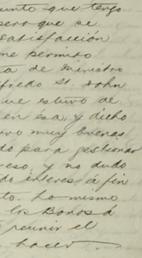 unto que tengo
pero que se
satisfacción
me permito
a de Ministro
fredo St. John
ue estuvo de
en esa y dicho
vo muy buenas
do para gestionar
reso, y no dudo
do interes á fin
to. Lo mismo
los Bonos á
reunir el
hacer